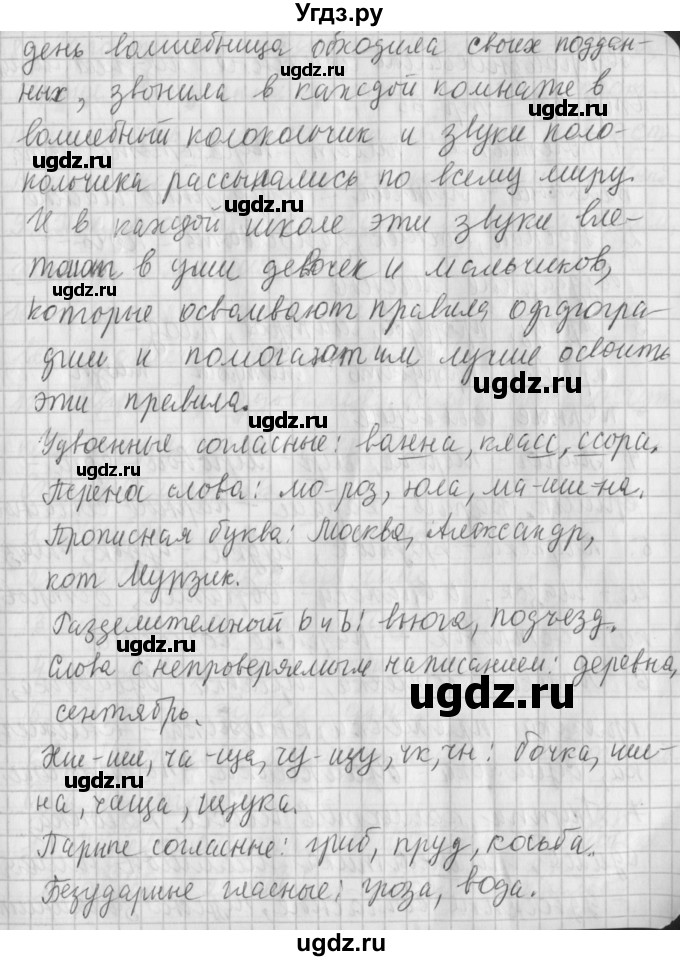 Угдз.ру
день волшебница обходила своих поддан-
ugdz.ru
ных, звонила в каждой комнате в
ugdz.ru
ugdz.ru
волшебный колокольчик и звуки поло-
ugdz.ru
кольчика рассыпались по всему миру.
ugdz.ru
И в каждой школе эти звуки вле-
тают в уши девочек и мальчиков,
ugdz.ru
которые осваивают правила орфогра-
фии и помогают им лучше освоить
ugdz.ru
эти правила.
ugdz.ru
Удвоенные согласные: ванна, класс, ссора.
ugdz.ru
Перенос слова: мо-роз, юла, ма-ши-на.
Прописная буква: Москва, Александр,
ugdz.ru
кот Мурзик.
Разделительный ь и ъ: вьюга, подъезд.
ugdz.ru
Слова с непроверяемым написанием: деревна,
ugdz.ru
сентябрь.
ugdz.ru
Жи-ши, ча-ща, чу-щу, чк, чн: бочка, ши-
ugdz.ru
на, чаща, щука.
Парные согласные: гриб, пруд, косьба.
ugdz.ru
Безударные гласные: гроза, вода.
ugdz.ru
ugdz.ru